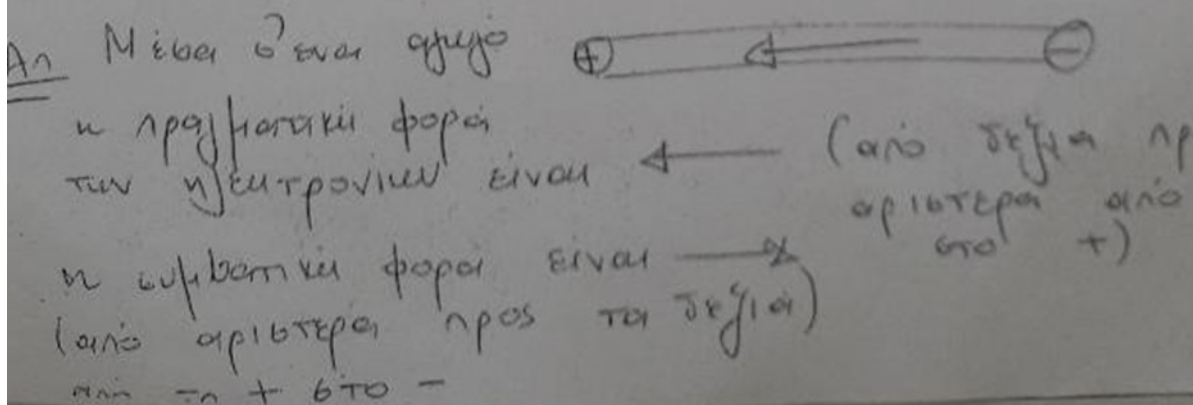 Απ Μέσα σ' ένα αγωγό + -
η πραγματική φορά
των ηλεκτρονίων είναι ← (από δεξιά πρ
αριστερά από
στο +)
η συμβατική φορά είναι →
(από αριστερά προς τα δεξιά)
από το + στο -